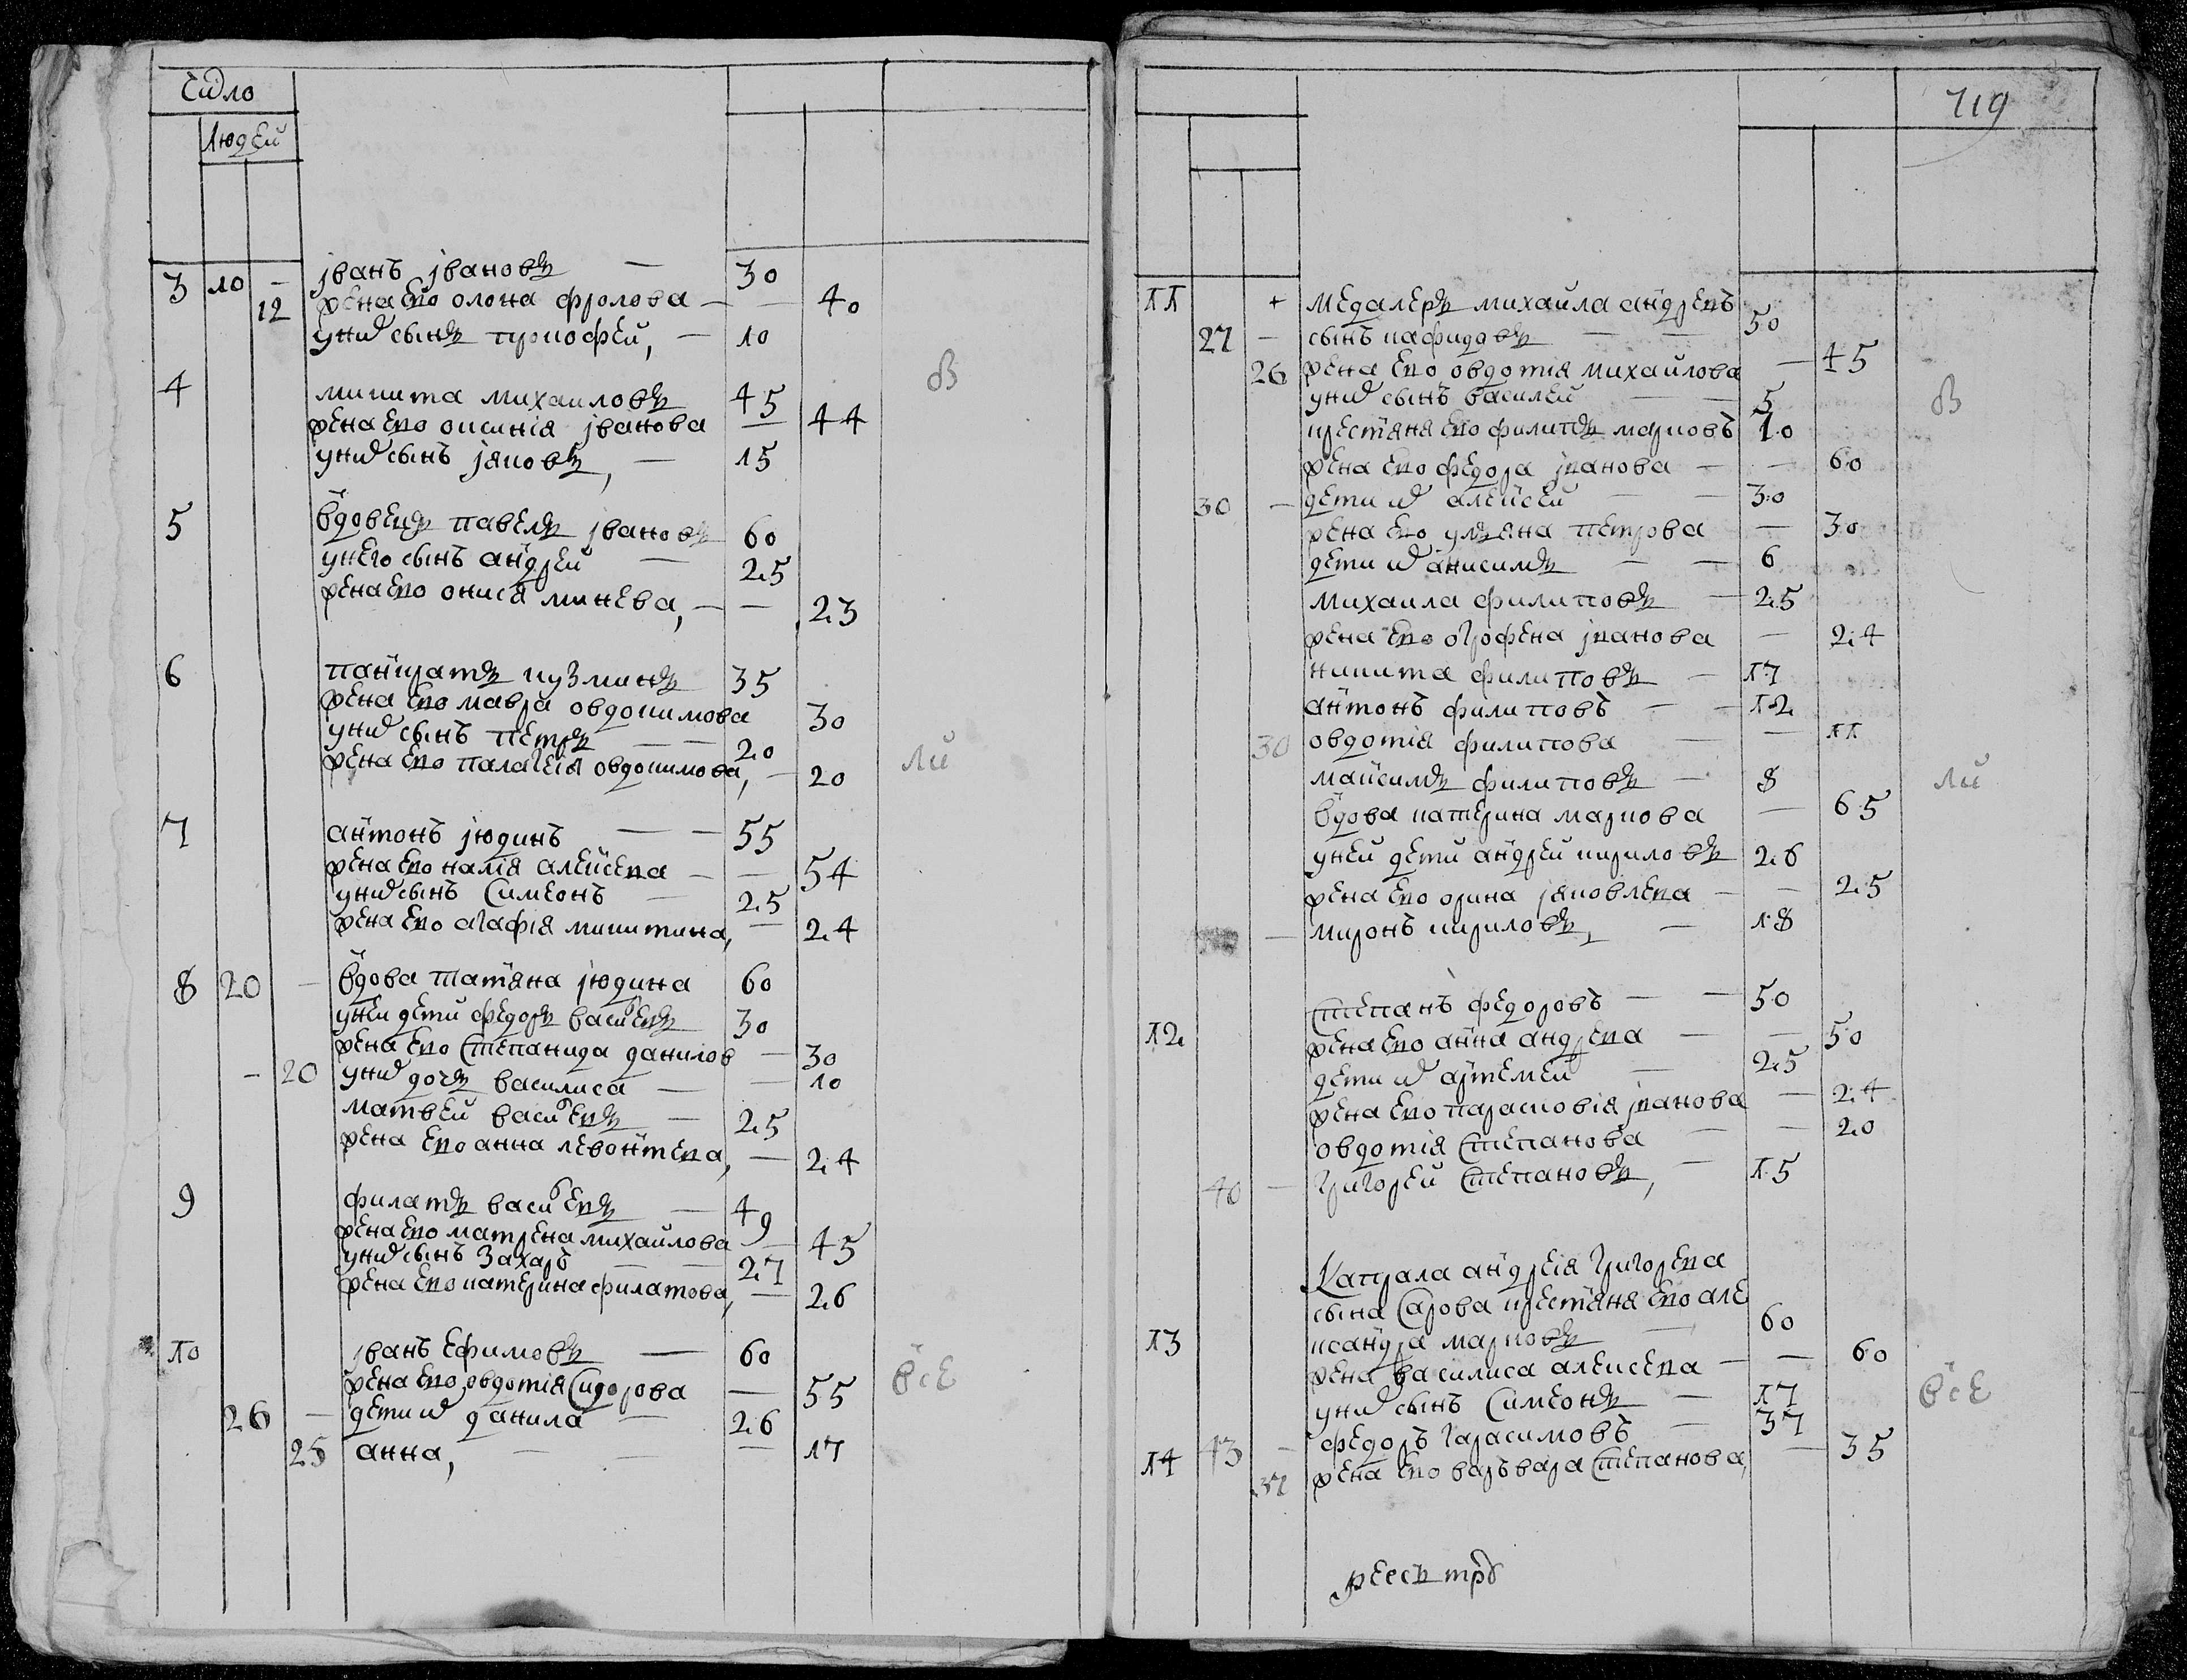 Число
Людей
3 10 — Іванъ Івановъ — 30
12 жена ево олона фролова — — 40
уних сынъ прокофей, — 10
4 никита михаиловъ 45
жена ево оксинія Іванова — 44
уних сынъ Іяковъ, — 15
5 вдовецъ павелъ Івановъ 60
унего сынъ андрей — 25
жена ево онися минеева, — — 23
6 панкратъ кузминъ 35
жена ево мавра овдокимова 30
уних сынъ петръ — — 20
жена ево палагея овдокимова, — 20
7 антонъ Іюдинъ — — 55
жена ево алексеева — — 54
уних сынъ Симеонъ — 25
жена ево агафія никитина, — 24
8 20 — вдова татяна Іюдина 60
уней дети федоръ васильевъ 30
жена ево Степанида данилов — 30
— 20 уних дочь василиса — — 10
матвей васильевъ — 25
жена ево анна левонтева, — 24
9 филатъ васильевъ — 49
жена ево матрена михайлова — 45
уних сынъ Захаръ — — 27
жена ево катерина филатова, — 26
10 Іванъ Ефимовъ — 60
жена ево овдотія Сидорова — 55
26 — дети их данила — 26
25 анна, — — — 17
в
ли
все
719
11 + медалеръ михаила андреевъ
27 — сынъ — — 50
26 жена ево овдотія михайлова — 45
уних сынъ василей — — 5
крестяня ево филипъ марковъ 10
жена ево федора Іванова — — 60
30 — дети их алексей — — 30
жена ево уляна петрова — 30
дети их анисимъ — — 6
михаила филиповъ — 25
жена ево огрофена Іванова — 24
никита филиповъ — 17
антонъ филиповъ — — 12
30 овдотія филипова — — 11
максимъ филиповъ — 8
вдова катерина маркова — 65
уней дети андрей кириловъ 26
жена ево орина Іяковлева — — 25
— миронъ кириловъ, — 18
Степанъ федоровъ — — 50
12 жена ево анна андреева — — 50
дети их артемей — 25
жена ево парасковія Іванова — 24
овдотія Степанова — — 20
40 — Григорей Степановъ, — 15
Капрала андрея Григорева
сына Сарова крестяня ево але
13 ксандра марковъ — 60
жена василиса алексеева — — 60
уних сынъ Симеонъ — 17
43 — федоръ Гарасимовъ — 37
14 37 жена ево варъвара Степанова, — 35
в
ли
все